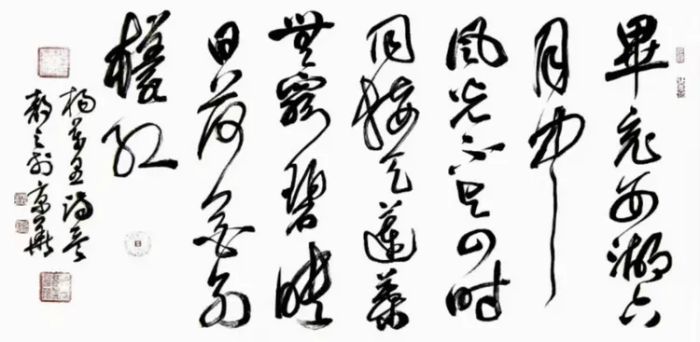 畢竟西湖六
月中
風光不與四時
同接天蓮葉
無窮碧映
日荷花別
樣紅
楊萬里詩
京華